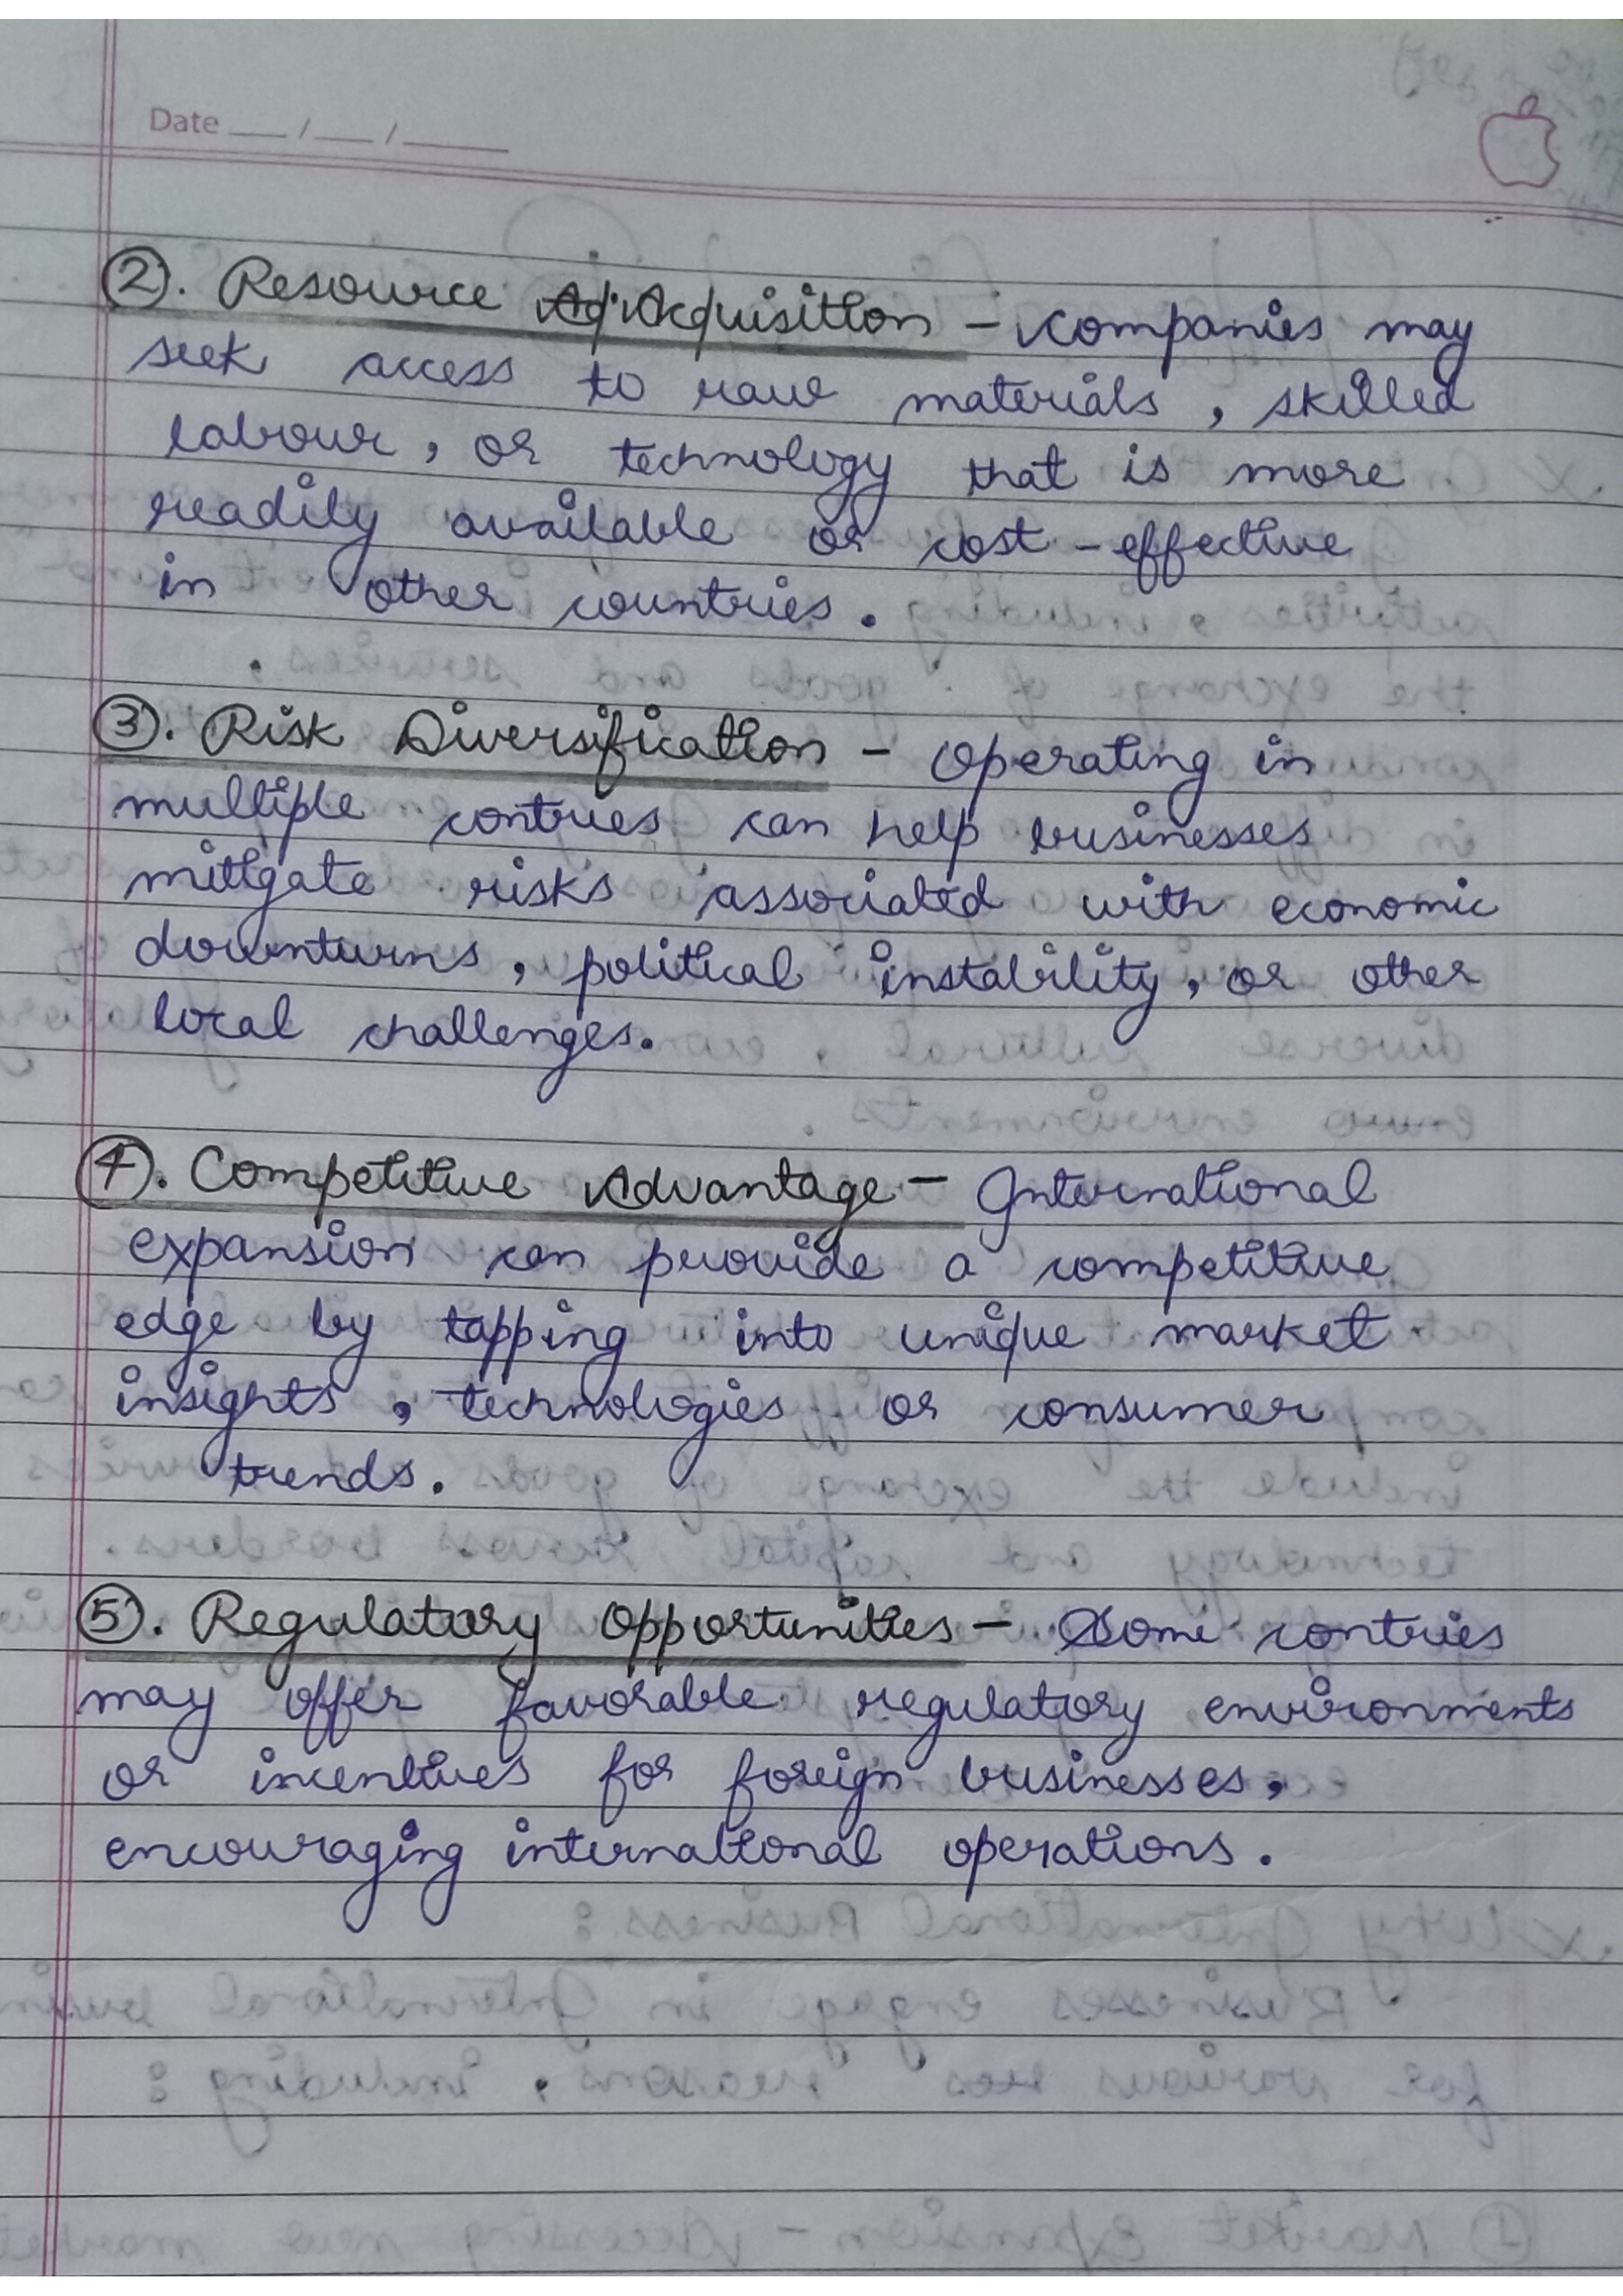 Date __/__/____
②. Resource Acquisition - Companies may
seek access to raw materials, skilled
labour, or technology that is more
readily available or cost-effective
in other countries.
③. Risk Diversification - Operating in
multiple contries can help businesses
mitigate risks associated with economic
downturns, political instability, or other
local challenges.
④. Competitive Advantage - International
expansion can provide a competitive
edge by tapping into unique market
insights, technologies or consumer
trends.
⑤. Regulatory Opportunities - Some contries
may offer favorable regulatory environments
or incentives for foreign businesses,
encouraging international operations.